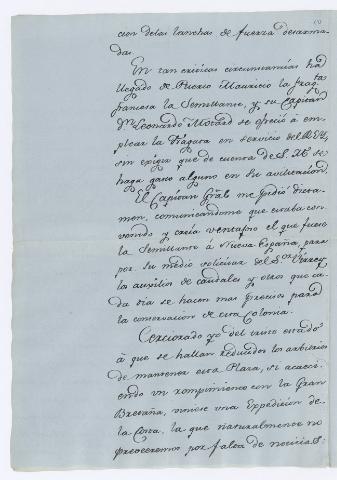 cion de las lanchas de fuerza desarma
das.
En tan criticas circunstancias ha
llegado de Puerto Mauricio la frag.ta
francesa la Semillante, y su Capitan
Dn. Leonardo Motard se ofreció á em
plear la fragata en servicio del Rey,
sin exigir que de cuenta de S. M. se
haga gasto alguno en su
El Capitan Gral me pidió dicta
men, comunicandome que estaba con
venido y creia ventajoso el que fuese
la Semillante á Nueva España, para
por su medio solicitar del S.or Virrey
los auxilios de caudales y otros que ca
da dia se hacen mas precisos para
la conservacion de esta Colonia.
Cerciorado yo del triste estado
á que se hallan reducidos los arbitrios
de mantener esta Plaza, si acaeci
endo un rompimiento con la Gran
Bretaña, una Expedicion de
la Costa, la que naturalmente no
por falta de noticias: